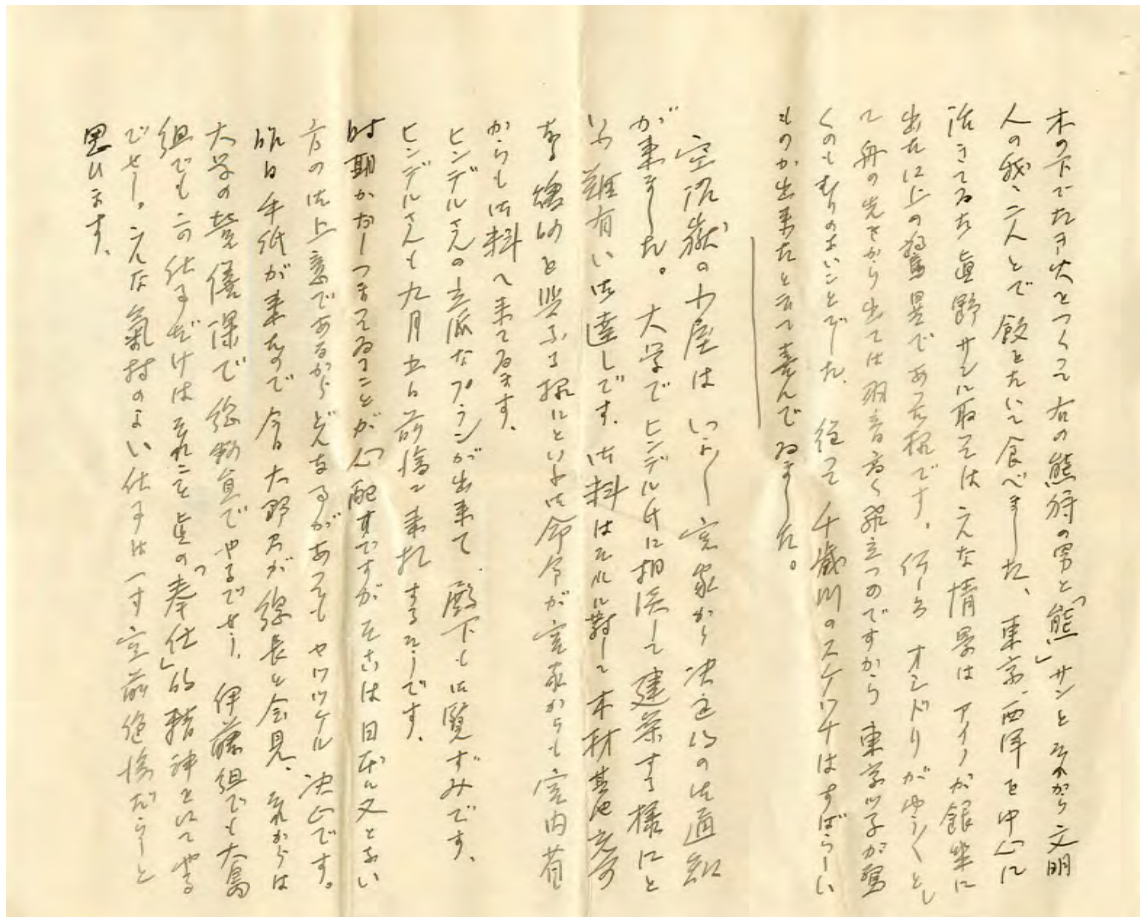 木の下でたき火をつくって右の熊狩の男と「熊」サンとそれから文明
人の我々二人とで飯をたいて食べました、東京、西洋を中心に
活きてゐた眞野サンに取つてはこんな情景はアイノが銀座に
出た以上の驚異であつた様です。何しろオシドリがゆうくとし
て舟の先きから出ては羽音高く飛立つのですから東京ッ子が驚
くのもむりのないことでした、従って千歳川のスケッチはすばらしい
ものが出来たと云つて喜んでゐました。
空沼嶽の小屋はいよ〱宮家から決定的の御通知
が来ました。大学でヒンデル氏に相談して建築する様にと
いふ難有い御達しです。御料はそれに対して木材其他充分
なる 援助を與ふる様にといふ御命令が宮家からも宮内省
からも御料へ来てゐます。
ヒンデルさんの立派なプランが出来て、殿下も御覧ずみです。
ヒンデルさんも九月五日前後に来札するそうです。
時期がおしつまつてゐることが心配ですがそこは日本に又とない
方の御上意であるからどんな事があってもヤッツケル決心です。
昨日手紙が来たので今日大野君が総長と会見、それからは
大学の営繕課で総動員でやるでせう。伊藤組でも大島
組でもこの仕事だけはそれこそ真の「奉仕」的精神を以て當る
でせう。こんな氣持のよい仕事は一寸空前絶後だらうと
思ひます。